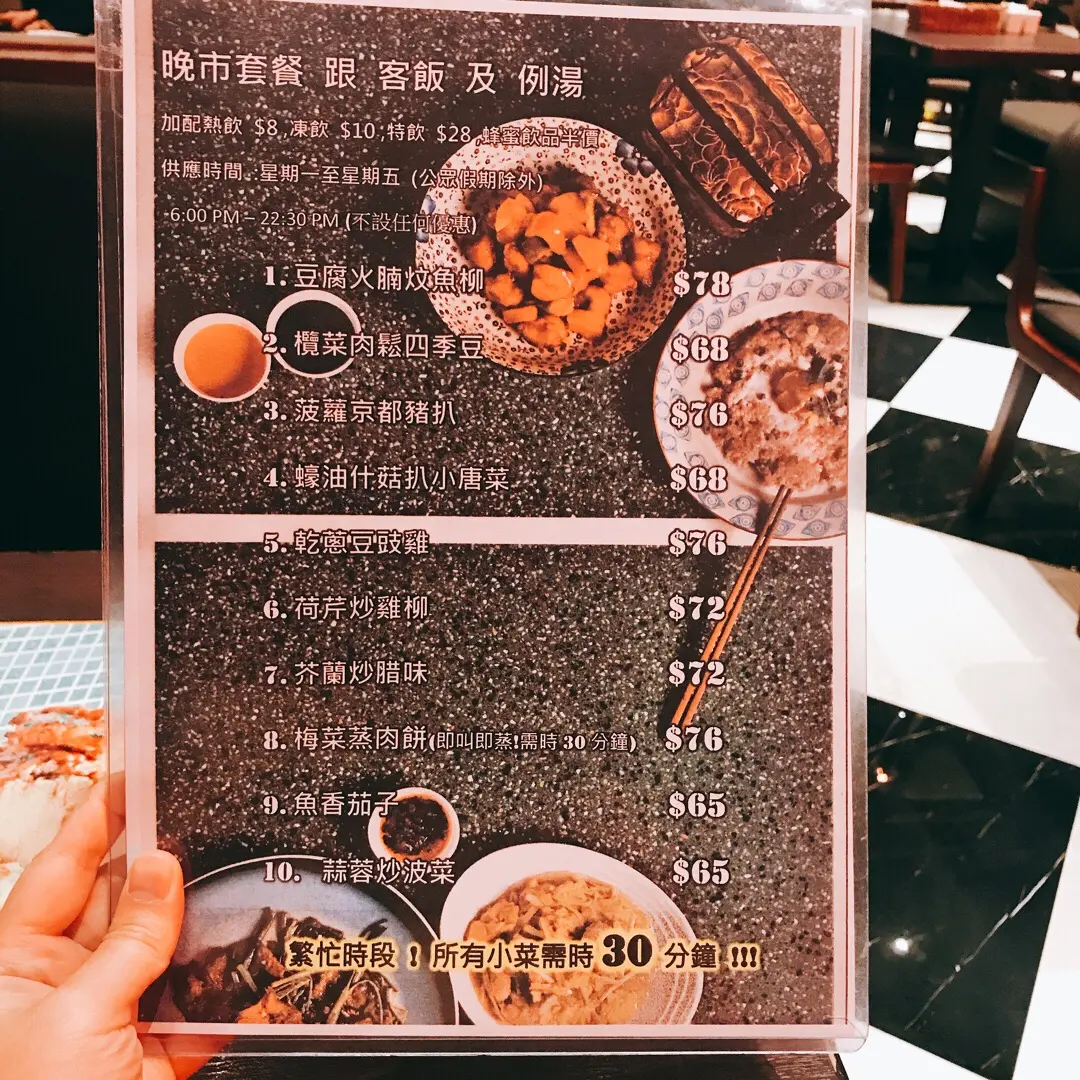 晚市套餐 跟 客飯 及 例湯
加配熱飲 $8 ,凍飲 $10 ,特飲 $28 ,蜂蜜飲品半價
供應時間 : 星期一至星期五 (公眾假期除外)
6:00 PM – 22:30 PM (不設任何優惠)
1. 豆腐火腩炆魚柳 $78
2. 欖菜肉鬆四季豆 $68
3. 菠蘿京都豬扒 $76
4. 蠔油什菇扒小唐菜 $68
5. 乾蔥豆豉雞 $76
6. 荷芹炒雞柳 $72
7. 芥蘭炒腊味 $72
8. 梅菜蒸肉餅(即叫即蒸!需時 30 分鐘) $76
9. 魚香茄子 $65
10. 蒜蓉炒波菜 $65
繁忙時段 ! 所有小菜需時 30 分鐘 !!!